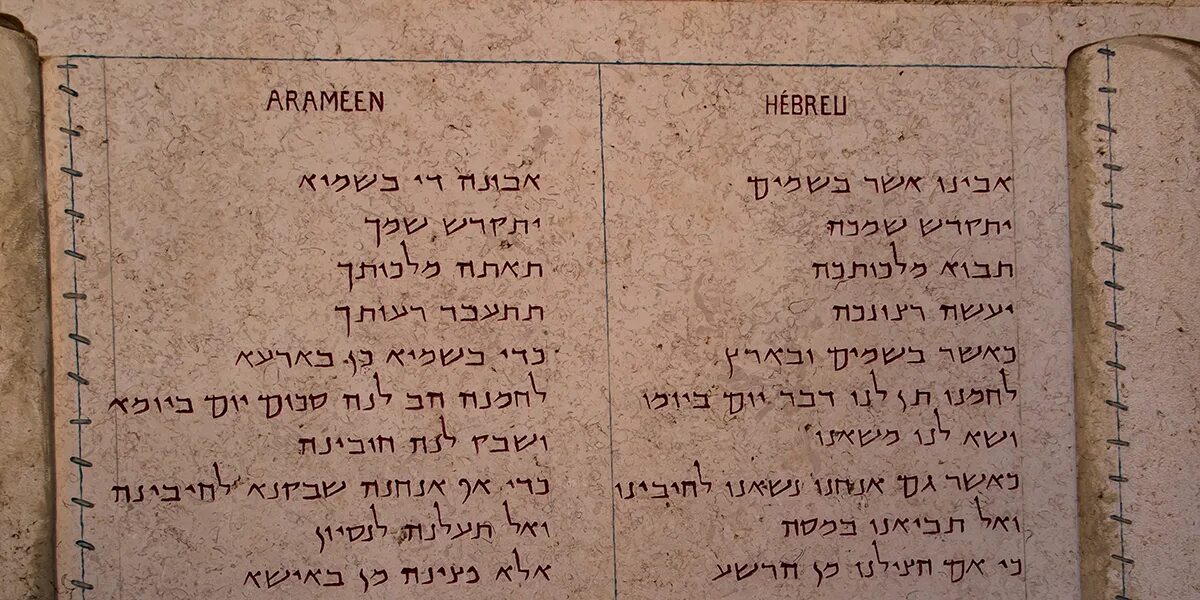 ARAMÉEN
אבונה די בשמיא
יתקדש שמך
תאתה מלכותך
תתעבד רעותך
כדי בשמיא כן בארעא
לחמנה הב לנה סכום יום ביומא
ושבק לנה חובינה
כדי אף אנחנה שבקנא לחיבינה
ואל תעלנה לנסיון
אלא פצינה מן באישא
HÉBREU
אבינו אשר בשמים
יתקדש שמכה
תבוא מלכותכה
יעשה רצונכה
כאשר בשמים ובארץ
לחמנו תן לנו דבר יום ביומו
ושא לנו משאנו
כאשר גם אנחנו נשאנו לחיבינו
ואל תביאנו במסה
כי אם הצילנו מן הרשע